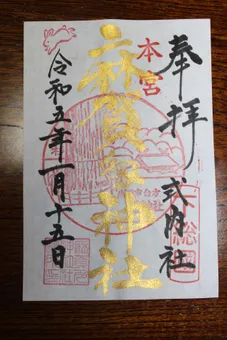 奉拝
式内社
総
本宮
麻賀多神社
令和五年一月十五日